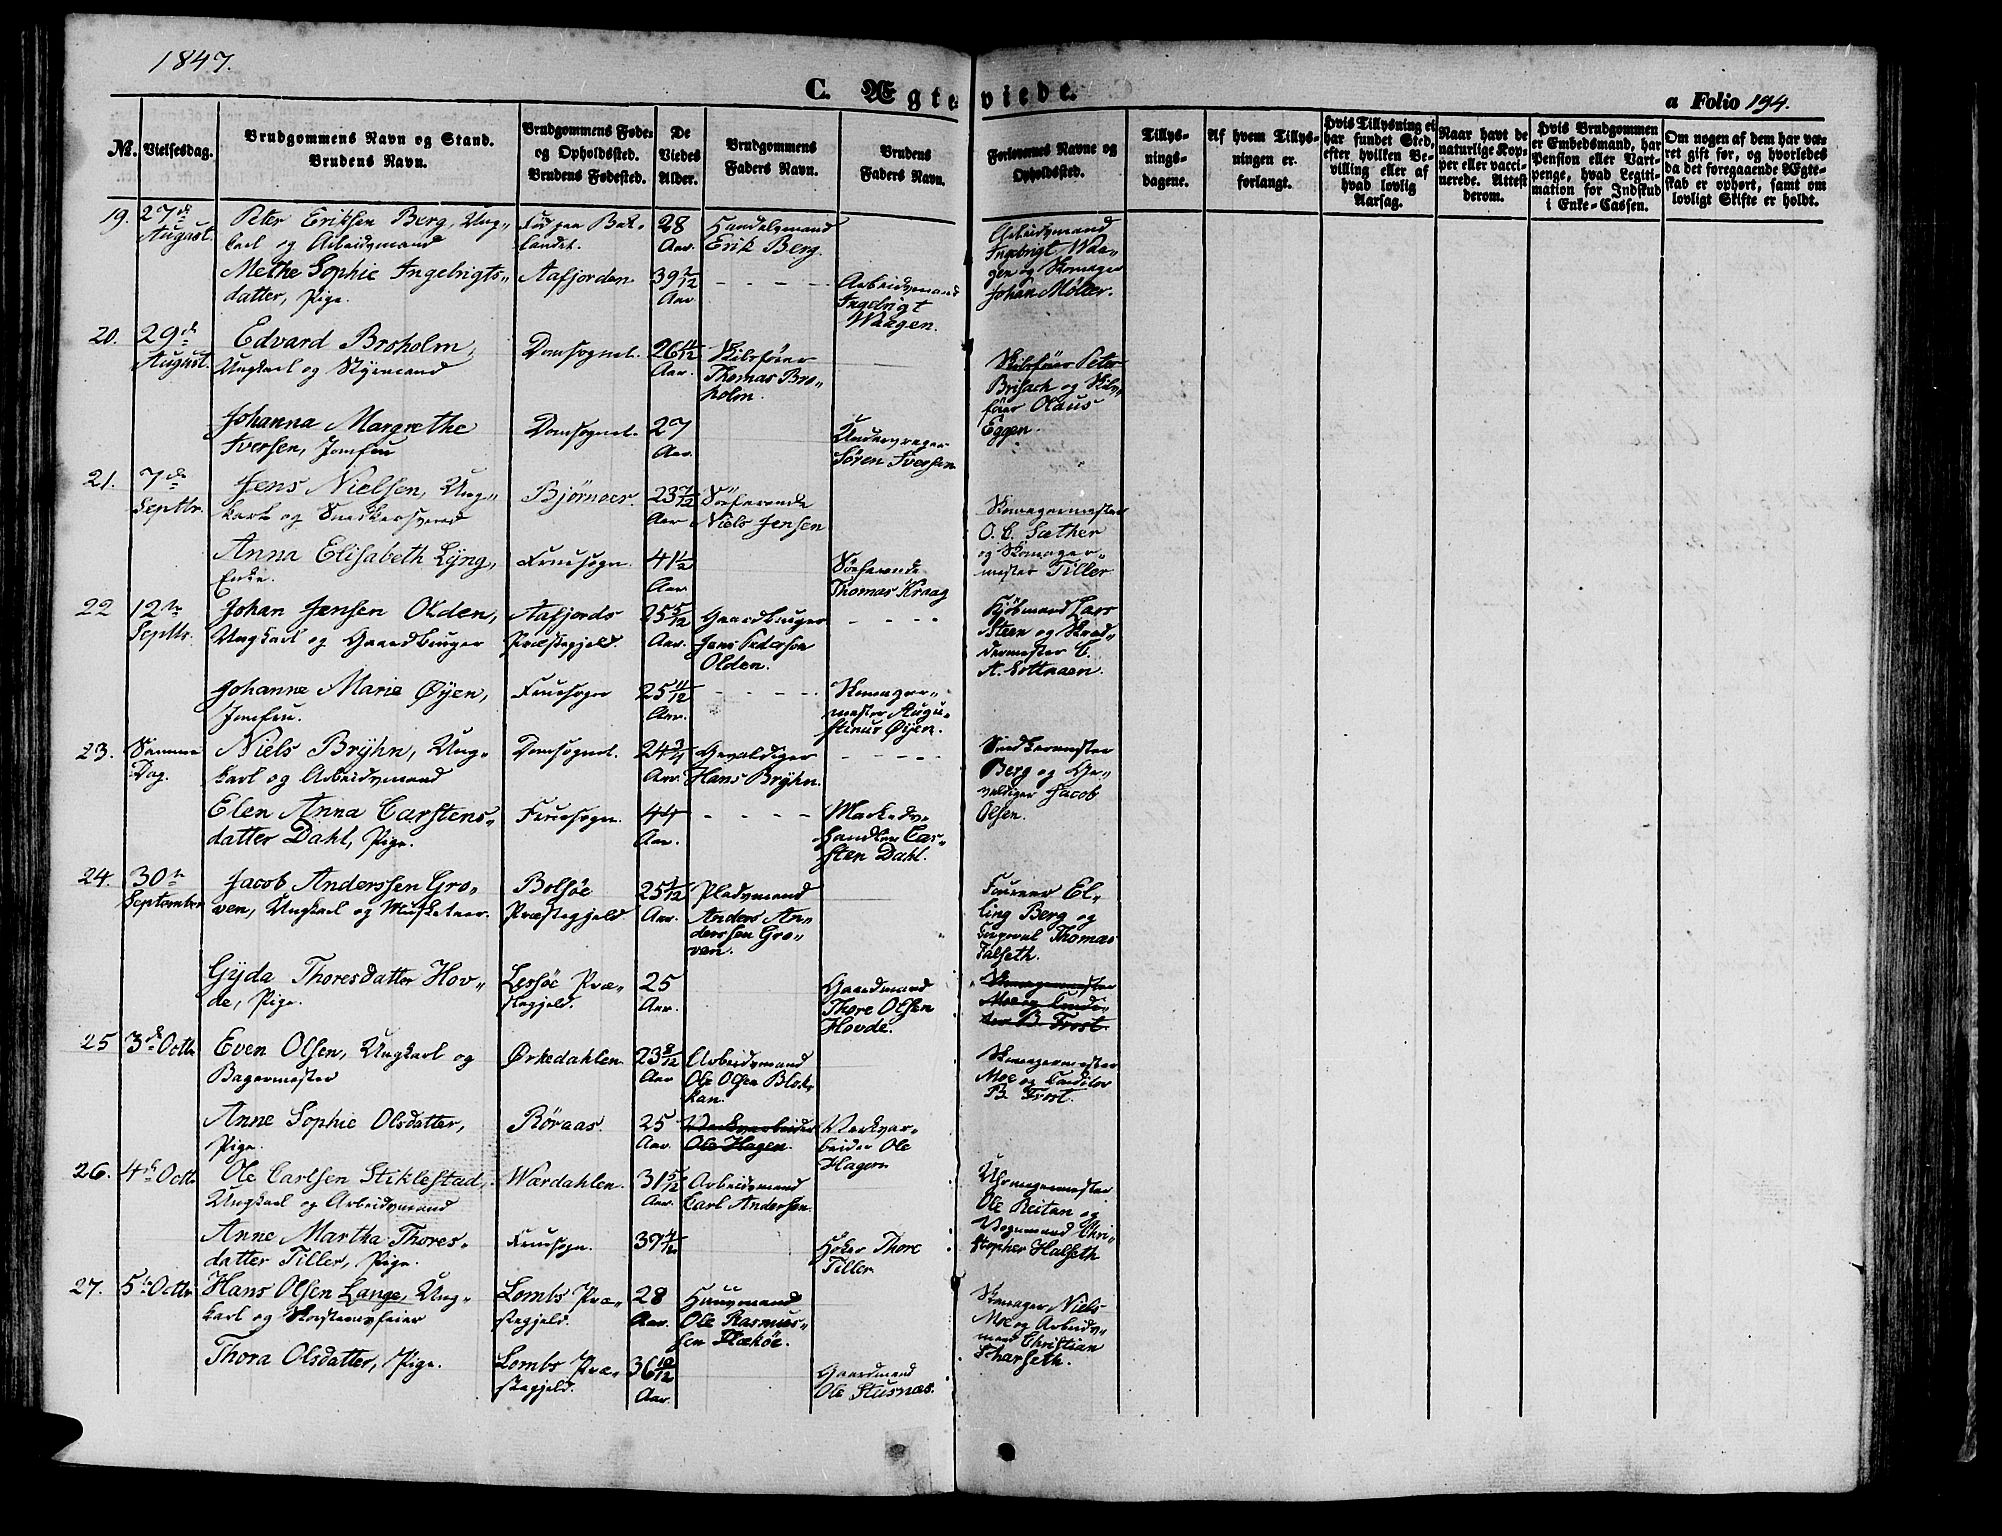 1847.
C. Ægteviede.
a Folio 194.
No.
Vielsesdag.
Brudgommens Navn og Stand.
Brudens Navn.
Brudgommens Føde-
og Opholdssted.
Brudens Fødested.
De
Viedes
Alder.
Brudgommens
Faders Navn.
Brudens
Faders Navn.
Forlovernes Navne og
Opholdssted.
Tillys-
nings-
dagene.
Af hvem Tillys-
ningen er
forlangt.
Hvis Tillysning ei
har fundet Sted,
efter hvilken Be-
villing eller af
hvad lovlig
Aarsag.
Naar havt de
naturlige Kop-
per eller vacci-
nerede. Attest
derom.
Hvis Brudgommen
er Embedsmand, har
Pension eller Vart-
penge, hvad Legiti-
mation for Indskud
i Enke-Cassen.
Om nogen af dem har væ-
ret gift før, og hvorledes
da det foregaaende Ægte-
skab er ophørt, samt om
lovligt Skifte er holdt.
19.
27de
August.
Peter Eriksen Berg, Ung-
karl og Arbeidsmand
Født paa Bak-
landet.
28
Aar.
Handelsmand
Erik Berg.
Arbeidsmand
Ingebrigt Waa-
gen og Skomager
Johan Møller.
Methe Sophie Ingebrigts-
datter, Pige.
Aafjorden.
39 7/12
Aar
- - - -
Arbeidsmand
Ingebrigt
Waagen.
20.
29de
August.
Edvard Broholm,
Ungkarl og Styrmand
Domsognet.
26 11/12
Aar.
Skibsfører
Thomas Bro-
holm.
Skibsfører Peter
Brisach og Skibs-
fører Olaus
Eggen.
Johanna Margrethe
Iversen, Jomfru
Domsognet.
27
Aar.
Undervrager
Sören Iversen
21.
7de
Septbr.
Jens Nielsen, Ung-
karl og Snedkersvend
Bjørnoer.
23 7/12
Aar
Søefarende
Niels Jensen
Skomagermester
O. C. Sæther
og Skomager-
mester Tiller
Anna Elisabeth Lÿng,
Enke.
Fruesogn.
41 1/2
Aar
Søefarende
Thomas Kraag
22
12te
Septbr.
Johan Jensen Olden,
Ungkarl og Gaardbruger
Aafjords
Præstegjeld.
25 5/12
Aar.
Gaardbruger
Jens Pedersen
Olden.
- - - -
Kjøbmand Lars
Steen og Skræd-
dermester C.
A. Kottnaen.
Johanne Marie Øÿen,
Jomfru.
Fruesogn
25 11/12
Aar.
- - - -
Skomager-
mester Augu-
stinus Øÿen.
23.
Samme
Dag.
Niels Brÿhn, Ung-
karl og Arbeidsmand
Domsognet.
24 3/4
Aar.
Gevaldiger
Hans Brÿhn.
- - - - -
Snedkermester
Berg og Ge-
valdiger Jacob
Olsen.
Elen Anna Carstens-
datter Dahl, Pige.
Fruesogn.
44
Aar.
- - - -
Markeds-
handler Car-
sten Dahl.
24.
30te
September
Jacob Anderssen Gro-
ven, Ungkarl og Musketeer.
Bolsøe
Præstegjeld
25 1/12
Aar.
Pladsmand
Anders An-
derssen Gro-
ven.
Foureer El-
ling Berg og
Corporal Thomas
Falseth.
Gÿda Thoresdatter Hov-
de, Pige.
Lessøe Præ-
stegjeld.
25
Aar.
Gaardmand
Thore Olsen
Hovde.
Skomagermester
Moe og Condi-
tor B. Trost.
25
3de Octbr
Even Olsen, Ungkarl og
Bagermester
Ørkedahlen
23 8/12
Aar
Arbeidsmand
Ole Olsen Blok-
kan.
Skomagermester
Moe og Conditor
B. Trost.
Anne Sophie Olsdatter,
Pige.
Røraas.
25
Aar.
Verksarbeider
Ole Hagen.
Verksar-
beider Ole
Hagen
26.
4de Octbr
Ole Carlsen Stiklestad,
Ungkarl og Arbeidsmand
Wærdahlen.
31 5/12
Aar.
Arbeidsmand
Carl Andersen.
Uhrmagermester
Ole Reitan og
Vognmand Chri-
stopher Halseth
Anne Martha Thores-
datter Tiller, Pige.
Fruesogn.
37 4/12
Høker Thore
Tiller
27.
5te Octbr
Hans Olsen Lange, Ung-
karl og Skorsteensfeier
Lombs Præ-
stegjeld.
28
Aar.
Huusmand
Ole Rasmus-
sen Flækøe.
Skomager Niels
Moe og Arbeids-
mand Christian
Scharseth.
Thora Olsdatter, Pige.
Lombs Præ-
stegjeld.
36 10/12
Aar.
Gaardmand
Ole Stusnæs.